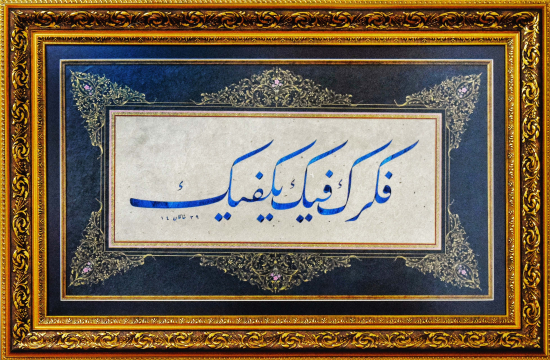 فكرك فيك يكفيك